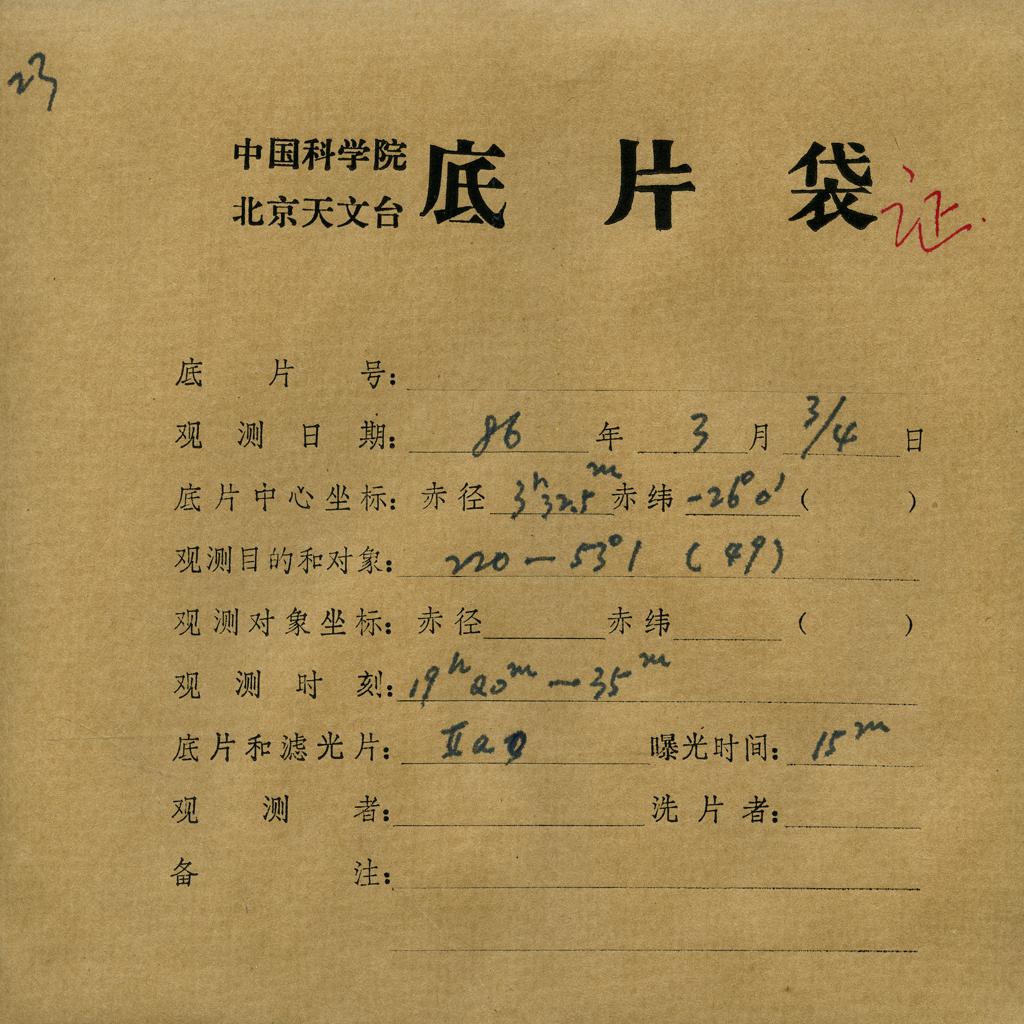 23
中国科学院
北京天文台
底片袋 证
底片号:
观测日期: 86 年 3 月 3/4 日
底片中心坐标: 赤径 3h32.5m 赤纬 -26°0′ ( )
观测目的和对象: 220—53°1 (49)
观测对象坐标: 赤径 赤纬 ( )
观测时刻: 19h20m—35m
底片和滤光片: IIaO 曝光时间: 15m
观测者: 洗片者:
备注: